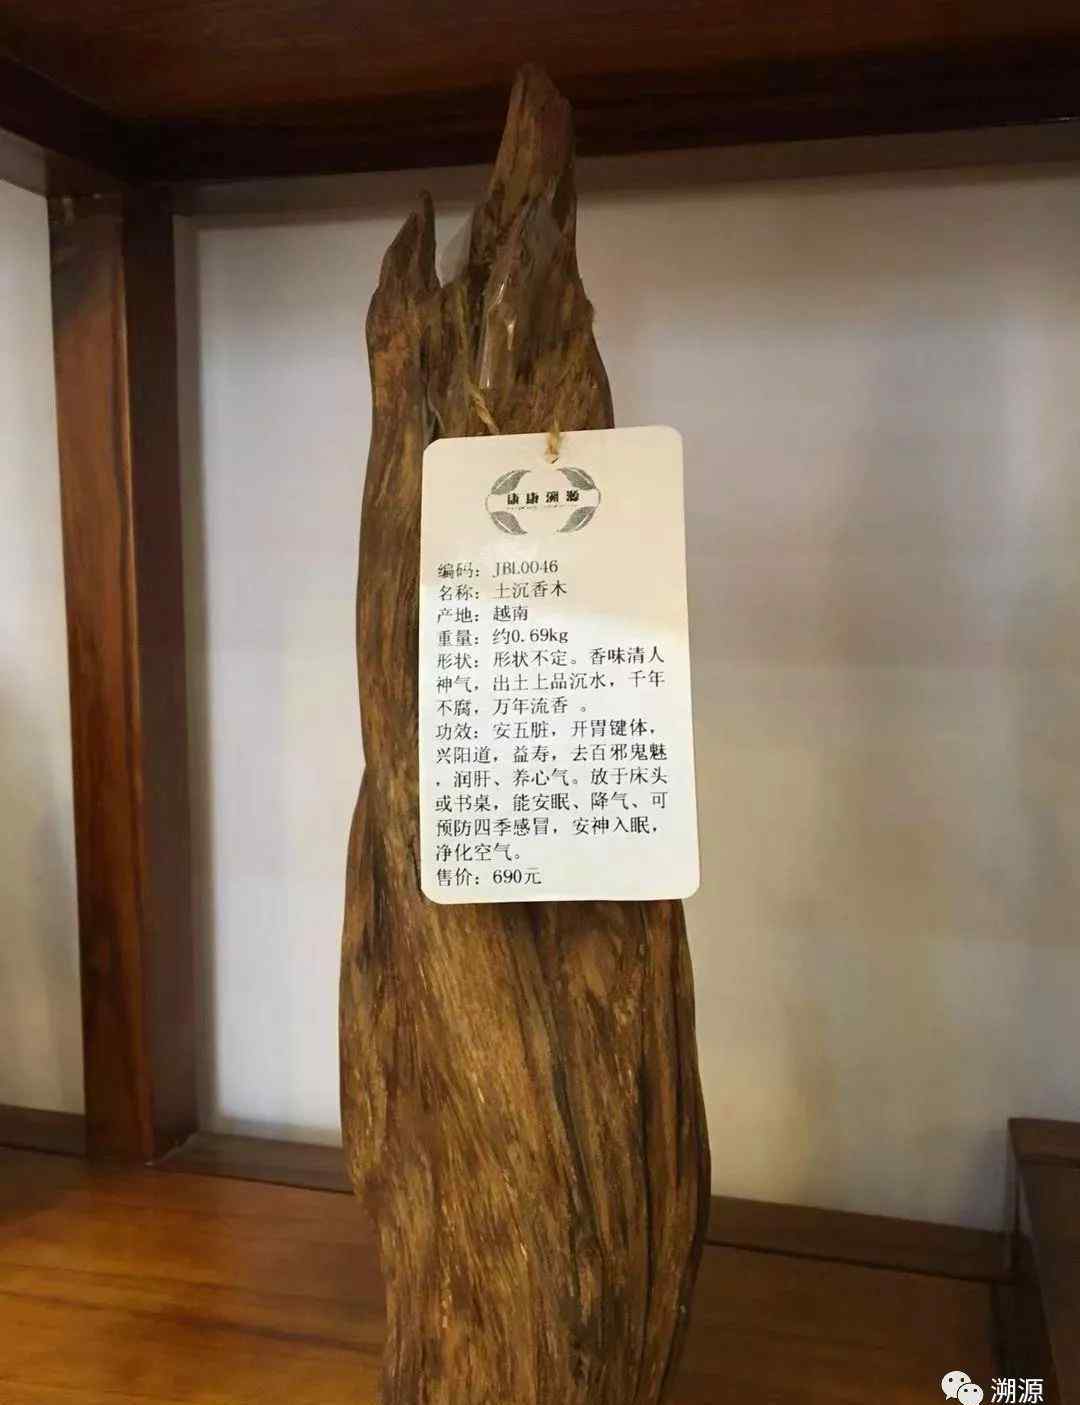 康康溯源
编码：JBL0046
名称：土沉香木
产地：越南
重量：约0.69kg
形状：形状不定。香味清人
神气，出土上品沉水，千年
不腐，万年流香 。
功效：安五脏，开胃键体，
兴阳道，益寿，去百邪鬼魅
，润肝、养心气。放于床头
或书桌，能安眠、降气、可
预防四季感冒，安神入眠，
净化空气。
售价：690元
溯源